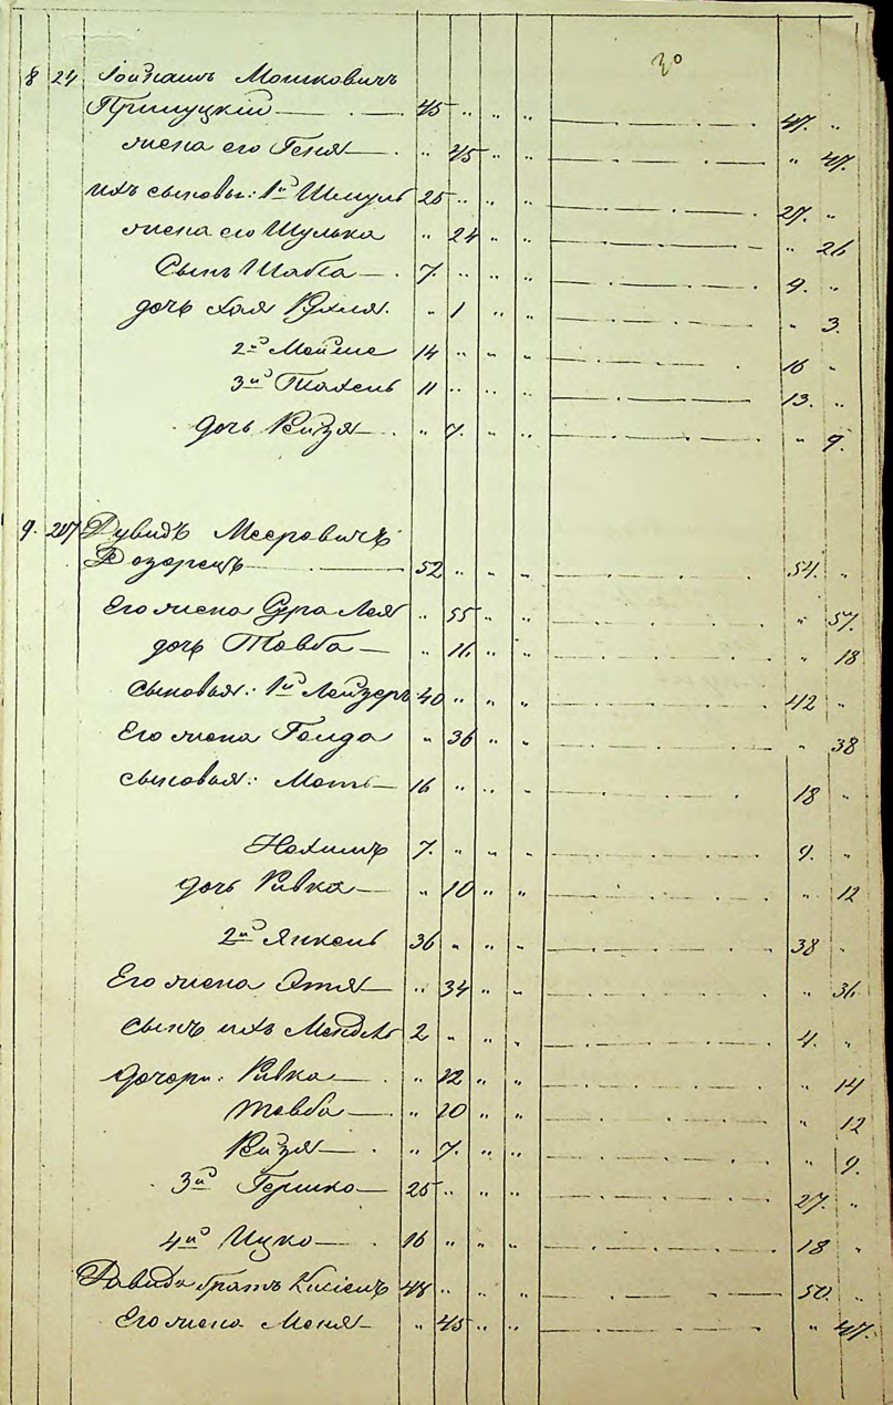 30
8 24 Мошковичъ
Прилуцкій — . — 45 " " " — . — . — . 47. "
жена его Геня — . " 45 " " — . — . — " 47.
ихъ сыновья: 1й Шмуль 25 " " " — . — . — . 27. "
жена его Шулька " 24 " " — . — . — " 26
Сынъ Шабса — . 7. " " " — . — . — . 9. "
дочь Хая Рухля. " 1 " " — . — . — . " 3.
2й Мойше 14 " " " — . — . 16 "
3й 11 " " " — . — . — 13. "
дочь Рейзя — . " 7. " " — . — . — " 9.
9. 207 Дувидъ Мееровичъ
Дозорецъ — . — 52 " " " — . — . — . 54. "
Его жена Сура Лея " 55 " " — . — . — . " 57.
дочь Товба — " 16 " " — . — . — . " 18
сыновья: 1й Лейзеръ 40 " " " — . — . — . 42 "
Его жена Голда " 36 " " — . — . — " 38
сыновья: Моть — 16 " " " — . — . 18 "
Нохимъ 7. " " " — . — . — . 9. "
дочь Ривка — " 10 " " — . — . — . " 12
2й Янкель 36 " " " — . — . — . 38 "
Его жена Этля — " 34 " " — . — . — . " 36.
сынъ ихъ Мендель 2 " " " — . — . — . 4. "
дочери: Ривка — . " 12 " " — . — . — . " 14
Товба — . " 10 " " — . — . — . " 12
Рейзя — . " 7. " " — . — . — . " 9.
3й Гершко — 25 " " " — . — . — . 27. "
4й Ицко — . 16 " " " — . — . — . 18 "
Давида братъ Кисіель 48 " " " — . — . — 50. "
Его жена Меня — " 45 " " — . — . — " 47.